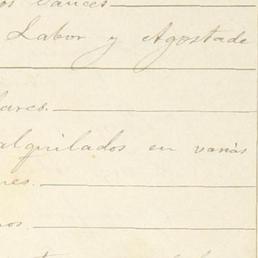 os sauces
Labor y Agostade
lares.
alquilados en varias
nes.
nos.